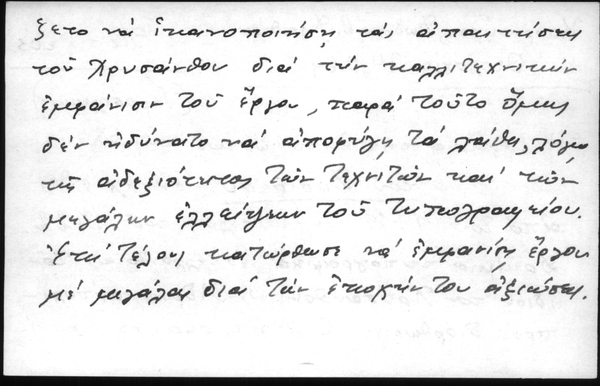 ξετο νά ἱκανοποιήση τάς ἀπαιτήσεις
τοῦ Χρυσάνθου διά τήν καλλιτεχνικήν
ἐμφάνισιν τοῦ ἔργου, παρά τοῦτο ὅμως
δέν ἠδύνατο νά ἀποφύγη τά λάθη, λόγω
τῆς ἀδεξιότητος τῶν τεχνιτῶν καί τῶν
μεγάλων ἐλλείψεων τοῦ τυπογραφείου.
Ἐπί τέλους κατώρθωσε νά ἐμφανίση ἔργον
μέ μεγάλας διά τήν ἐποχήν του ἀξιώσεις.